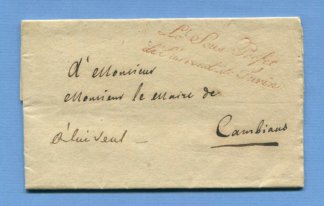 Le Sous Préfet
de l'arrond.t de Turin
A Monsieur
Monsieur le Maire de
à lui seul
Cambiano